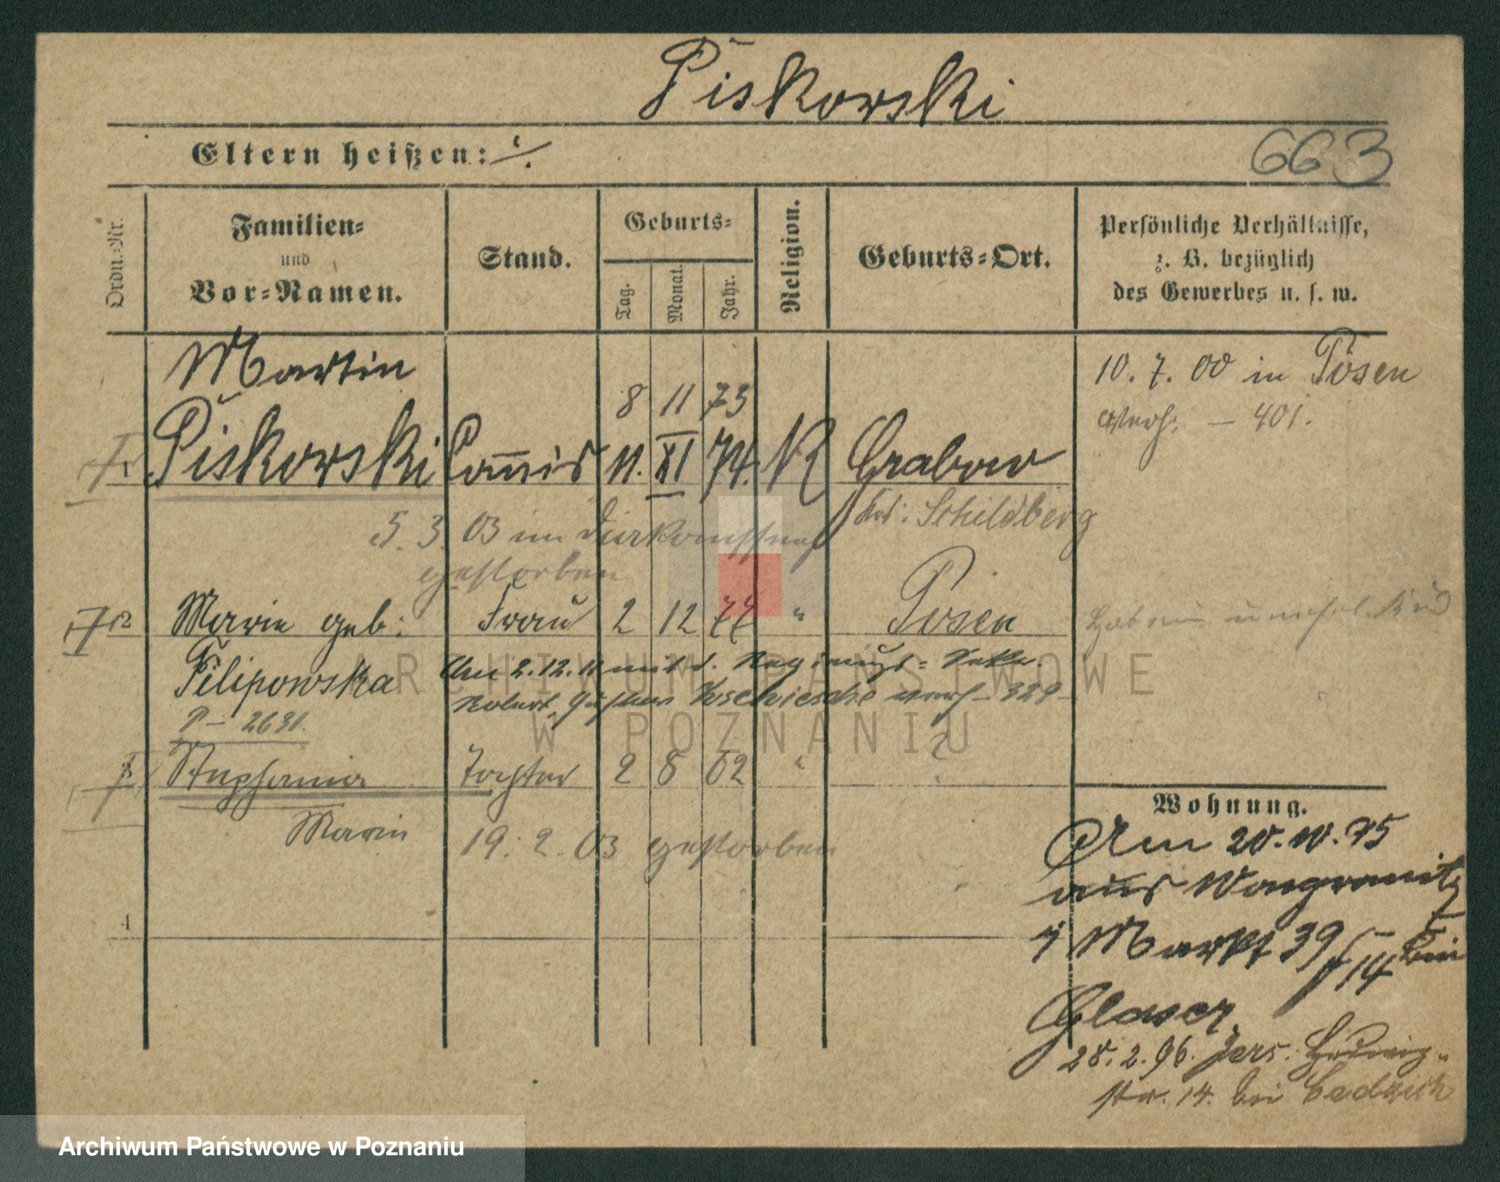 Piskorski
Eltern heißen: ./.
663
Ordn.-Nr.
Familien-
und
Vor-Namen.
Stand.
Geburts-
Tag.
Monat.
Jahr.
Religion.
Geburts-Ort.
Persönliche Verhältnisse,
z. B. bezüglich
des Gewerbes u. s. w.
Martin
8 11 73
10. 7. 00 in Posen
verh: – 401.
1 Piskorski Commis 11. XI 74. K Grabow
Krs: Schildberg
5. 3. 03 im
gestorben
2 Marie geb: Frau 2 12 77 " Posen
Filipowska
Am 2.12.
verh – 329 –
P – 2631.
3 Stephania Tochter 2 8 02 " "
Marie
19. 2. 03 gestorben
4
Wohnung.
Am 20. 10. 95
aus Wongrowitz
Markt 39
14 bei
Glaser
28. 2. 96. Jers. Hedwig-
str. 14. bei
ARCHIWUM PAŃSTWOWE
W POZNANIU
Archiwum Państwowe w Poznaniu